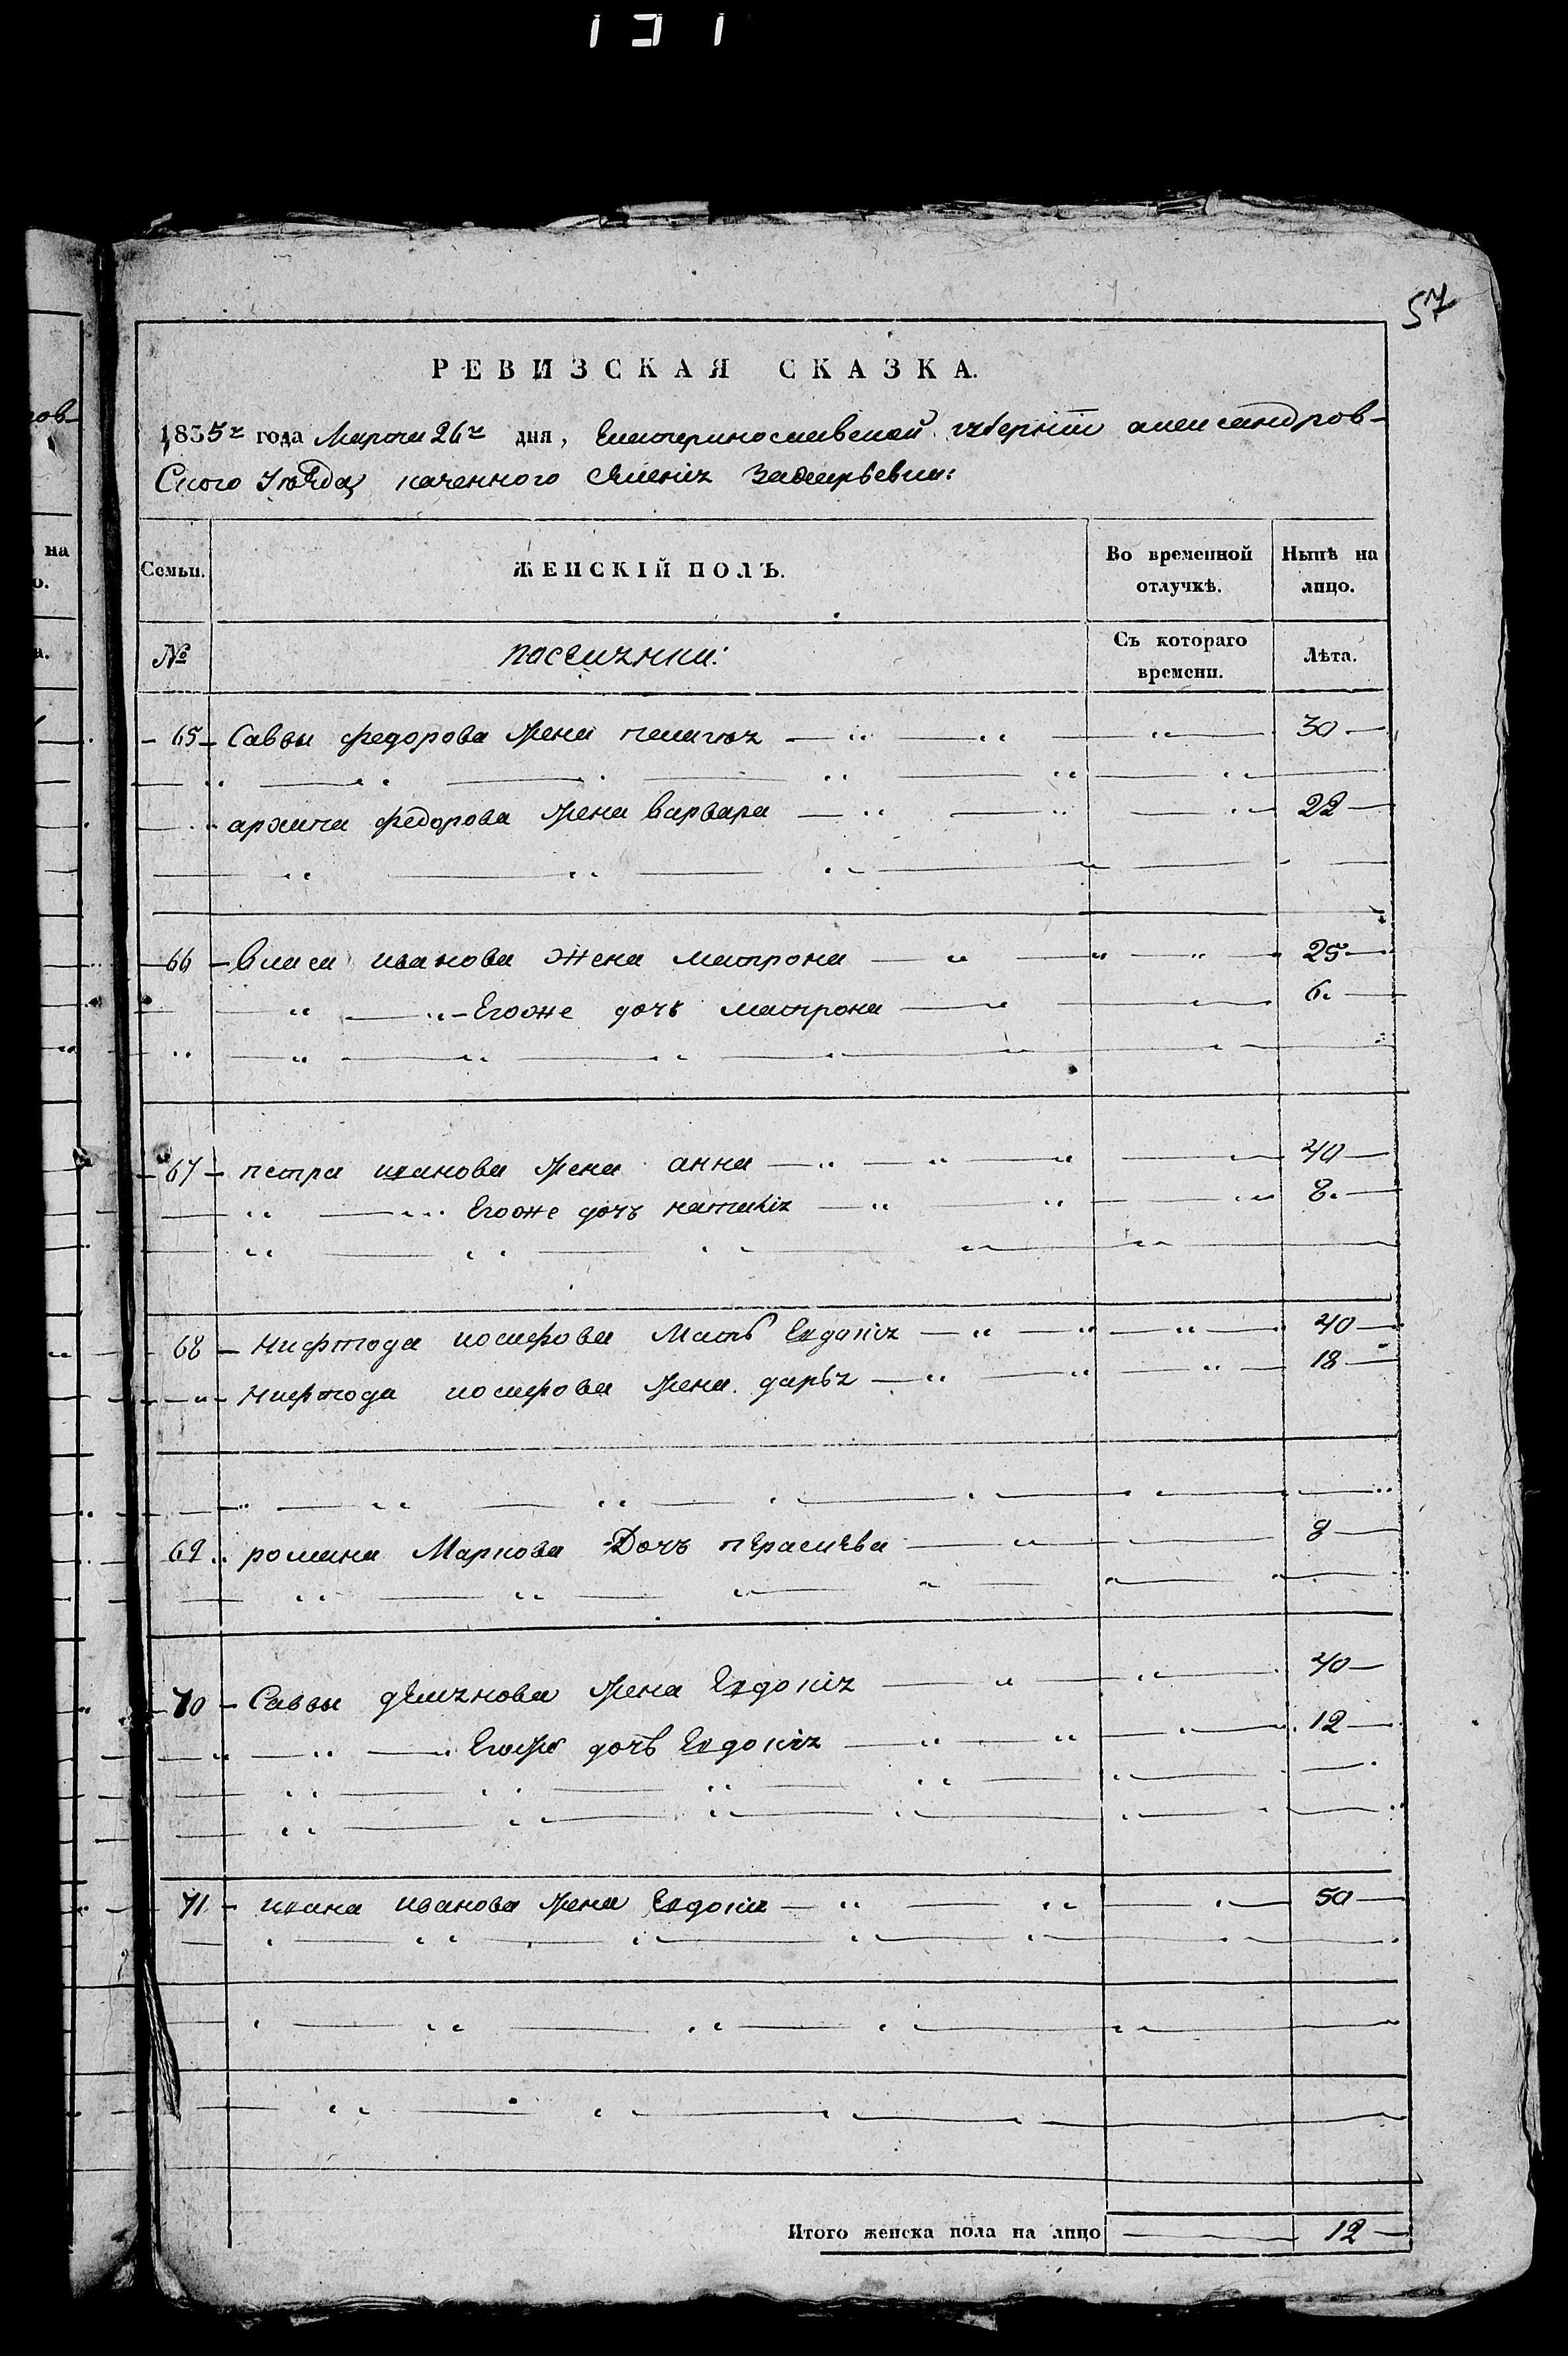 57
РЕВИЗСКАЯ СКАЗКА.
1835г года Марта 26г дня, Екатеринославской губернии александров-
Ского уѣзда, казенного Имения
Семьи. ЖЕНСКІЙ ПОЛЪ. Во временной отлучкѣ. Нынѣ на лицо.
№ Съ котораго времени. Лѣта.
65 Саввы федорова Жена пелагѣя 30
архипа федорова Жена варвара 22
66 власа иванова Жена матрона 25
Егоже дочь матрона 6
67 петра иванова Жена анна 40
Егоже дочь наталия 8
68 осифова Мать Евдокия 40
осифова Жена дарья 18
69 романа Маркова Дочь параскева 8
70 Саввы демянова Жена Евдокия 40
Егоже дочь Евдокия 12
71 ивана иванова Жена Евдокия 50
Итого женска пола на лицо 12